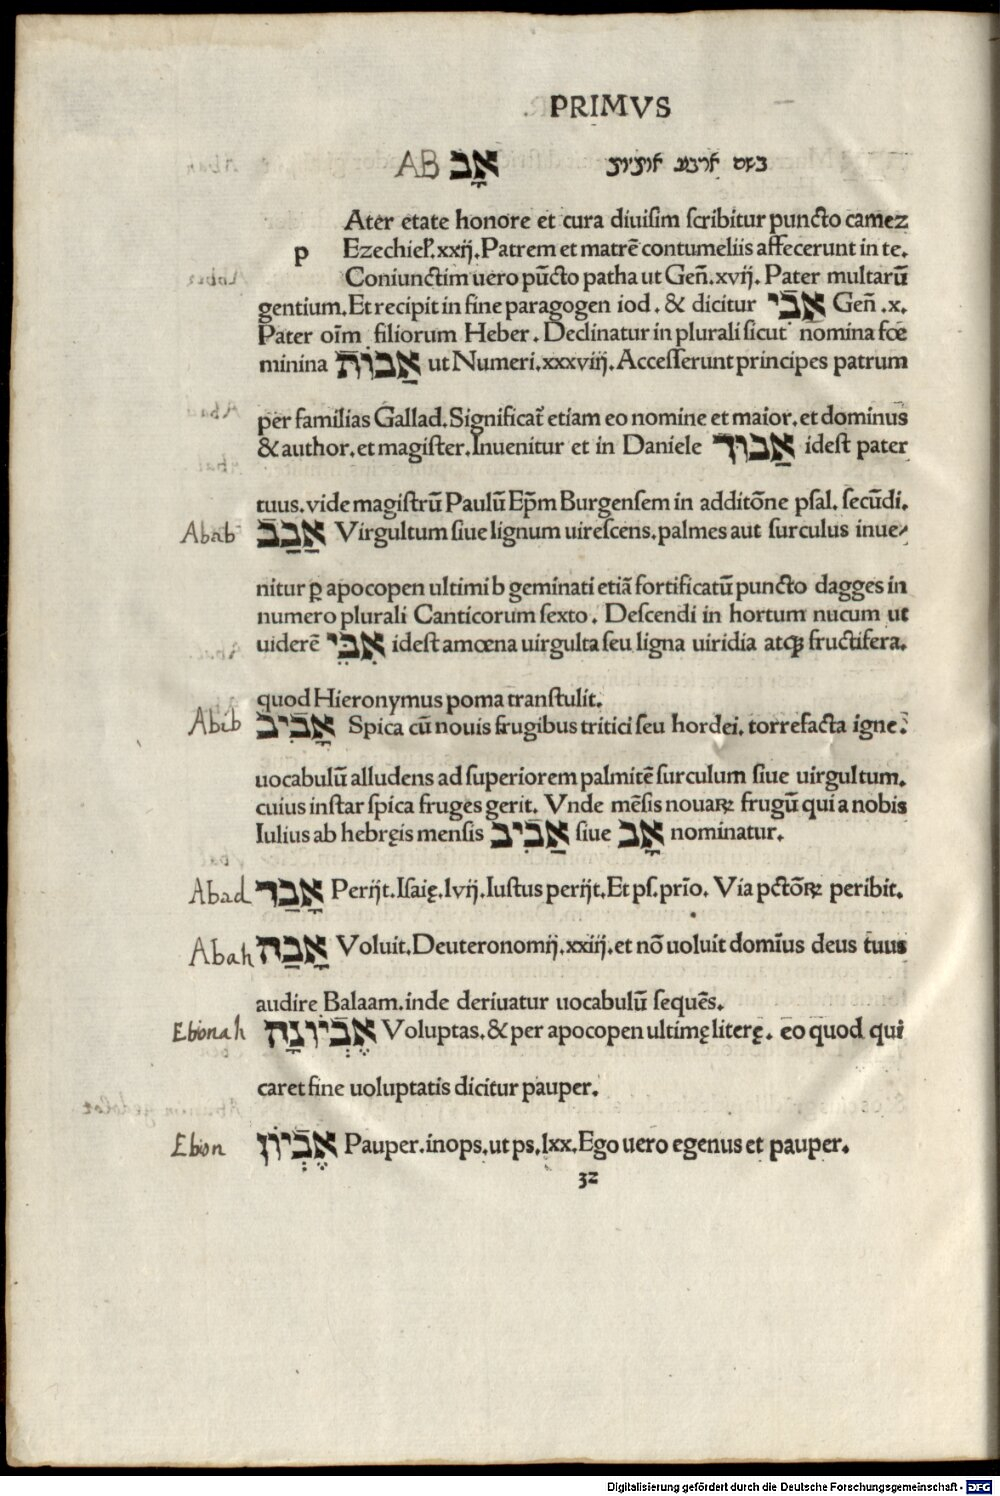 PRIMVS
AB אָב בשם ארבע אותיות
Ater etate honore et cura diuisim scribitur puncto camez
p Ezechiel̃.xxij.Patrem et matrẽ contumeliis affecerunt in te.
Coniunctim uero pũcto patha ut Geñ.xvij. Pater multarũ
gentium.Et recipit in fine paragogen iod. & dicitur אֲבִי Geñ .x.
Pater oĩm filiorum Heber. Declinatur in plurali sicut nomina fœ
minina אֲבוֹת ut Numeri.xxxviij.Accesserunt principes patrum
per familias Gallad.Significat̃ etiam eo nomine et maior.et dominus
& author.et magister.Inuenitur et in Daniele אֲבוּך idest pater
tuus.vide magistrũ Paulũ Ep̃m Burgensem in additõne psal. secũdi.
Abab אֲבַב Virgultum siue lignum uirescens.palmes aut surculus inue/
nitur ꝑ apocopen ultimi b geminati etiã fortificatũ puncto dagges in
numero plurali Canticorum sexto. Descendi in hortum nucum ut
uiderẽ אִבֵּי idest amœna uirgulta seu ligna uiridia atqꝫ fructifera.
quod Hieronymus poma transtulit.
Abib אָבִיב Spica cũ nouis frugibus tritici seu hordei. torrefacta igne.
uocabulũ alludens ad superiorem palmitẽ surculum siue uirgultum.
cuius instar spica fruges gerit. Vnde mẽsis nouaꝝ frugũ qui a nobis
Iulius ab hebręis mensis אֲבִיב siue אָב nominatur.
Abad אָבַד Perijt.Isaię.lvij.Iustus perijt.Et ps.prĩo. Via pctõꝝ peribit.
Abah אָבַה Voluit.Deuteronomij.xxiij.et nõ uoluit domĩus deus tuus
audire Balaam.inde deriuatur uocabulũ sequẽs.
Ebionah אֶבְיוֹנָה Voluptas.& per apocopen ultimę literę. eo quod qui
caret fine uoluptatis dicitur pauper.
Ebion אֶבְיוֹן Pauper.inops.ut ps.lxx.Ego uero egenus et pauper.
32
Digitalisierung gefördert durch die Deutsche Forschungsgemeinschaft - DFG